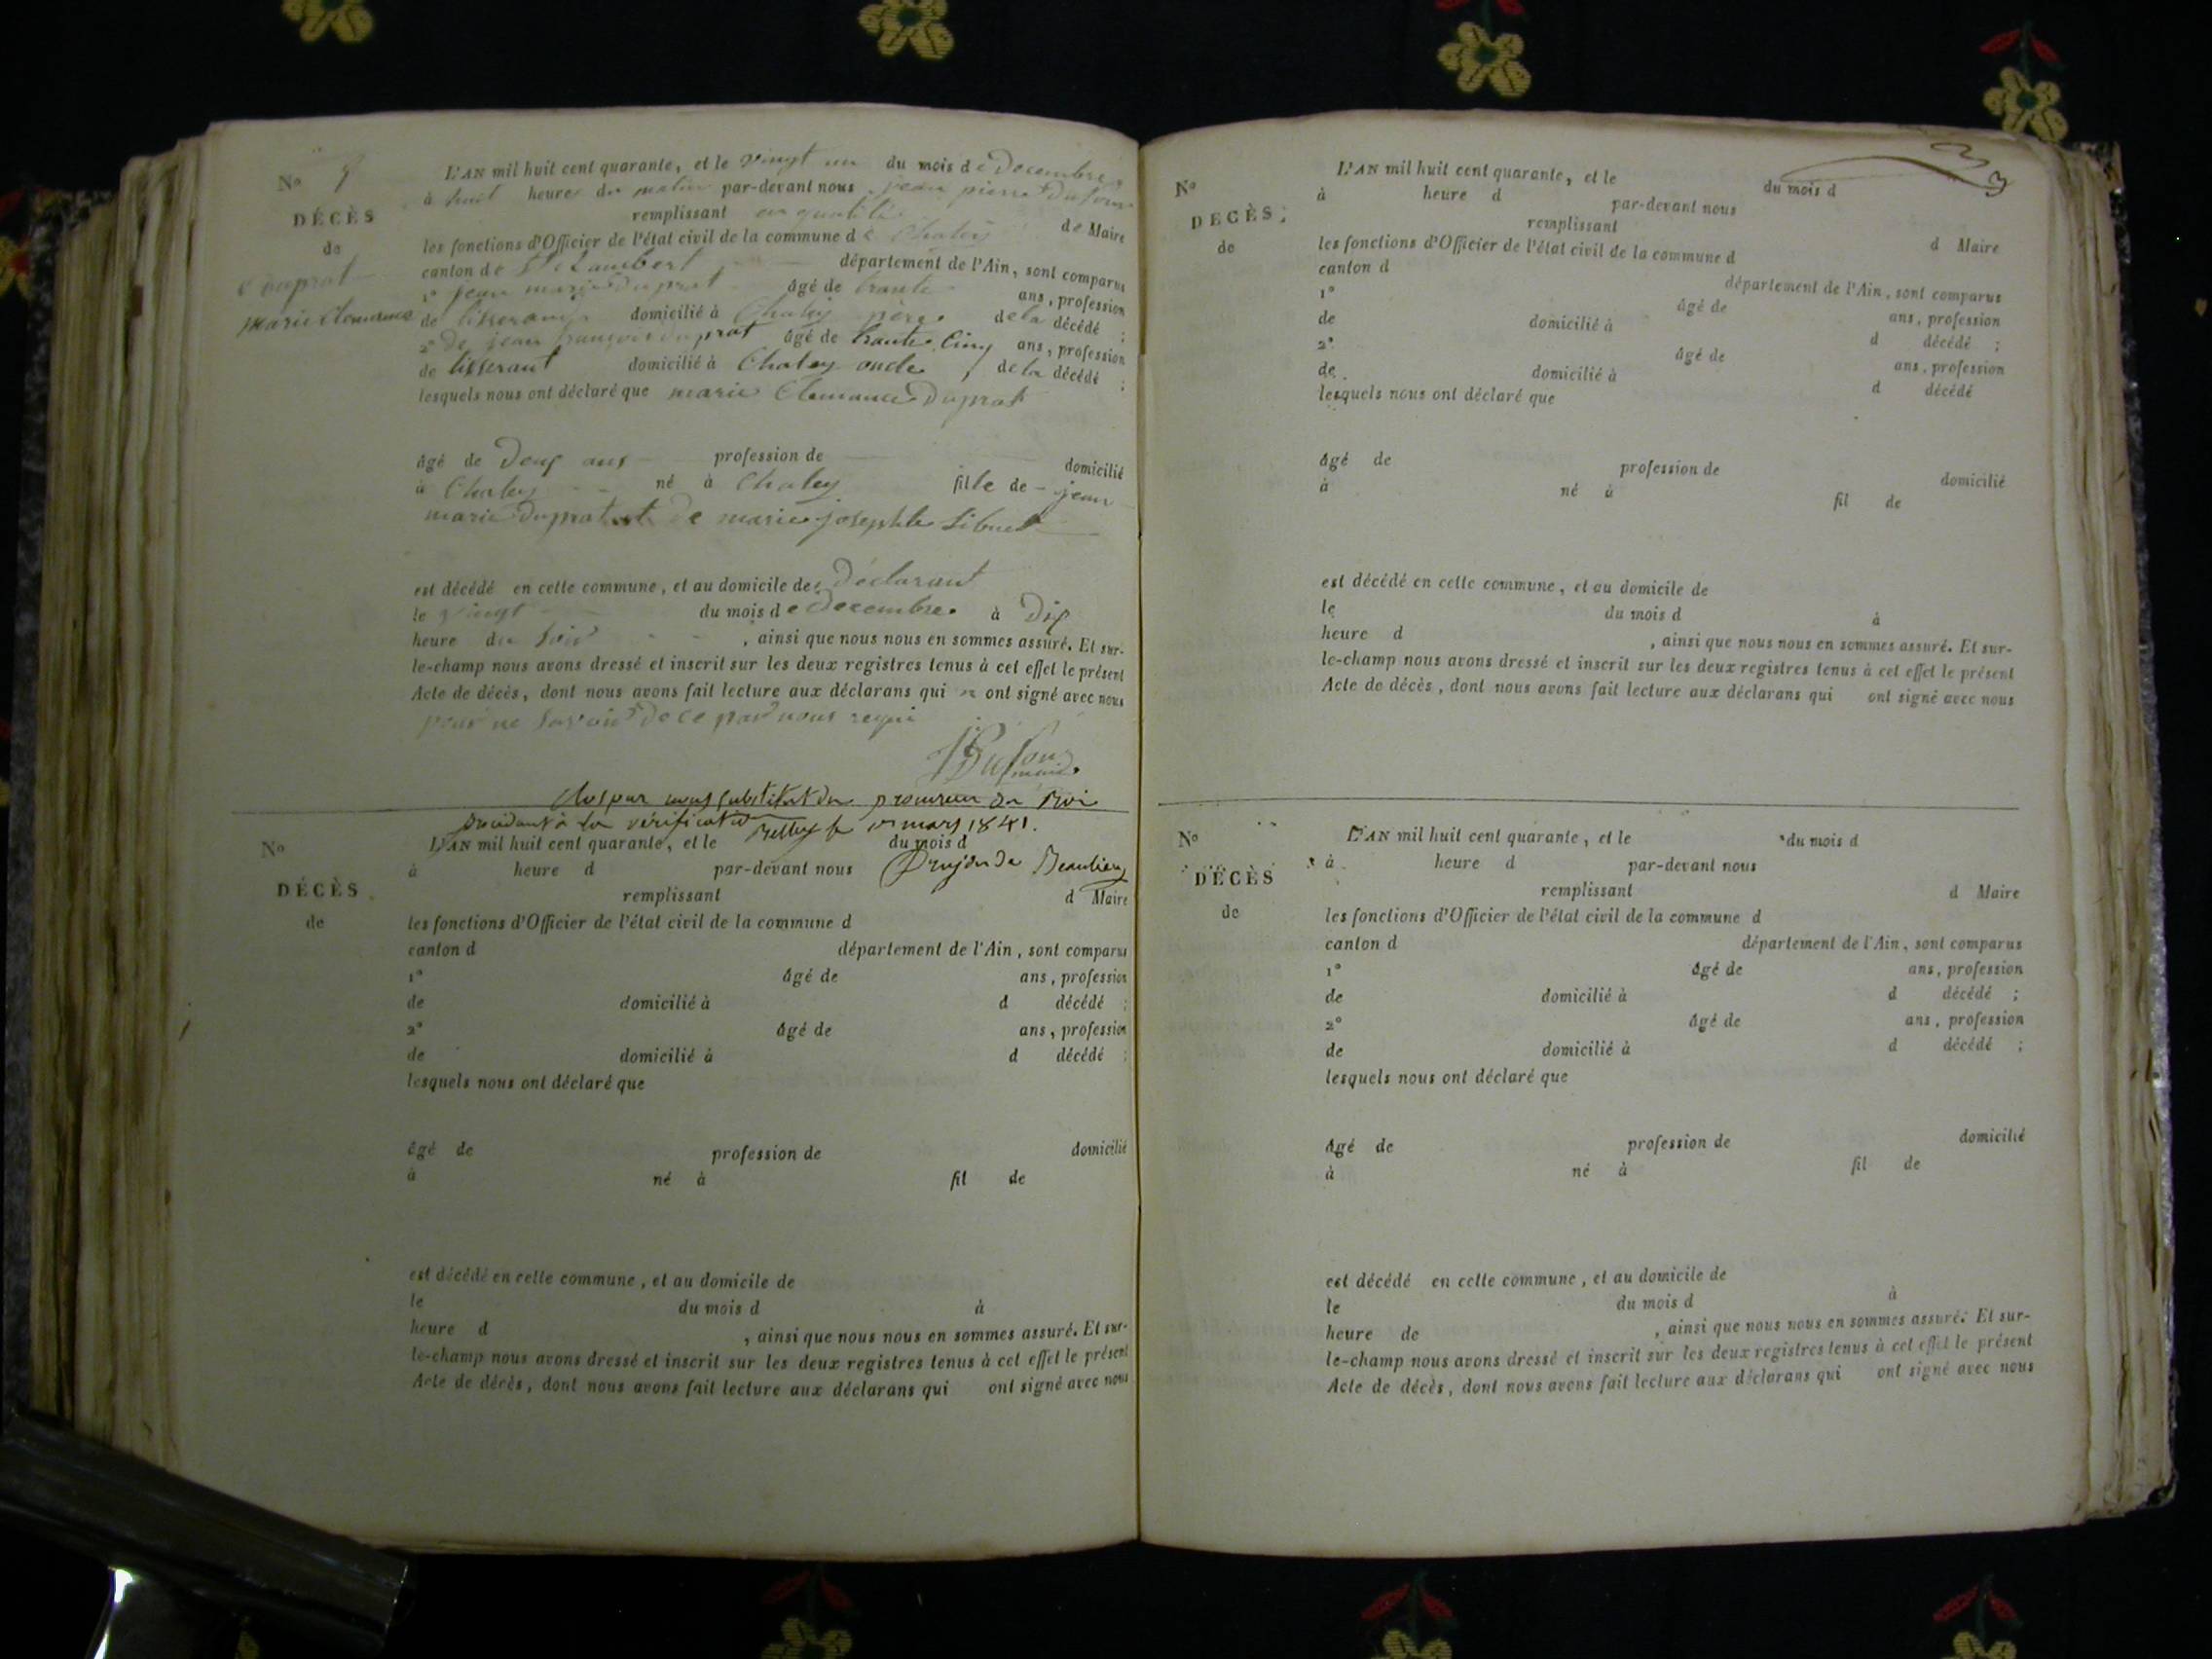 No 9
DÉCÈS
de
Duprat
marie Clemance
L'AN mil huit cent quarante, et le vingt un du mois de Decembre
à huit heures du matin par-devant nous jean pierre Dufour
remplissant en qualité de Maire
les fonctions d'Officier de l'état civil de la commune de Chaley
canton de St Rambert département de l'Ain, sont comparus
1° Jean marie Duprat âgé de trante ans, profession
de tisserant domicilié à Chaley père de la décédé ;
2° De jean françois Duprat âgé de trante cinq ans, profession
de tisserant domicilié à Chaley oncle de la décédé ;
lesquels nous ont déclaré que marie Clemance Duprat
âgé de Deux ans profession de domicilié
à Chaley né à Chaley fille de jean
marie Duprat et de marie josephte
est décédé en cette commune, et au domicile de Déclarant
le vingt du mois de Decembre à Dix
heure du soir , ainsi que nous nous en sommes assuré. Et sur-
le-champ nous avons dressé et inscrit sur les deux registres tenus à cet effet le présent
Acte de décès, dont nous avons fait lecture aux déclarans qui n ont signé avec nous
pour ne savoir De ce par nous requi
Dufour
maire
Clos par nous substitut du procureur du Roi
procédant à la vérification Belley le mars 1841.
No
DÉCÈS
de
L'AN mil huit cent quarante, et le du mois d
à heure d par-devant nous Drujon de Beaulieu
remplissant d Maire
les fonctions d'Officier de l'état civil de la commune d
canton d département de l'Ain, sont comparus
1° âgé de ans, profession
de domicilié à d décédé ;
2° âgé de ans, profession
de domicilié à d décédé ;
lesquels nous ont déclaré que
âgé de profession de domicilié
à né à fil de
est décédé en cette commune, et au domicile de
le du mois d à
heure d , ainsi que nous nous en sommes assuré. Et sur-
le-champ nous avons dressé et inscrit sur les deux registres tenus à cet effet le présent
Acte de décès, dont nous avons fait lecture aux déclarans qui ont signé avec nous
33
No
DÉCÈS
de
L'AN mil huit cent quarante, et le du mois d
à heure d par-devant nous
remplissant d Maire
les fonctions d'Officier de l'état civil de la commune d
canton d département de l'Ain, sont comparus
1° âgé de ans, profession
de domicilié à d décédé ;
2° âgé de ans, profession
de domicilié à d décédé
lesquels nous ont déclaré que
âgé de profession de domicilié
à né à fil de
est décédé en cette commune, et au domicile de
le du mois d à
heure d , ainsi que nous nous en sommes assuré. Et sur-
le-champ nous avons dressé et inscrit sur les deux registres tenus à cet effet le présent
Acte de décès, dont nous avons fait lecture aux déclarans qui ont signé avec nous
No
DÉCÈS
de
L'AN mil huit cent quarante, et le du mois d
à heure d par-devant nous
remplissant d Maire
les fonctions d'Officier de l'état civil de la commune d
canton d département de l'Ain, sont comparus
1° âgé de ans, profession
de domicilié à d décédé ;
2° âgé de ans, profession
de domicilié à d décédé ;
lesquels nous ont déclaré que
âgé de profession de domicilié
à né à fil de
est décédé en cette commune, et au domicile de
le du mois d à
heure de , ainsi que nous nous en sommes assuré. Et sur-
le-champ nous avons dressé et inscrit sur les deux registres tenus à cet effet le présent
Acte de décès, dont nous avons fait lecture aux déclarans qui ont signé avec nous